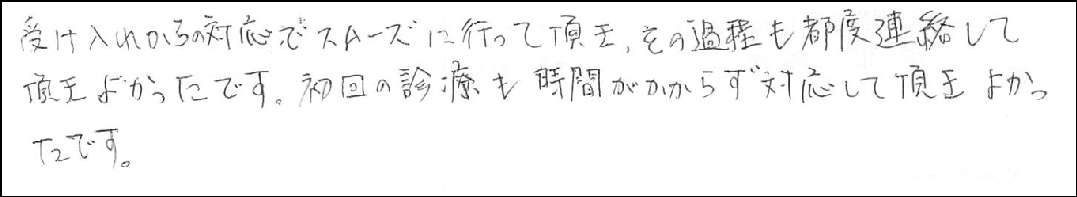 受け入れからの対応でスムーズに行って頂き、その過程も都度連絡して
頂きよかったです。初回の診療も時間がかからず対応して頂きよかっ
たです。